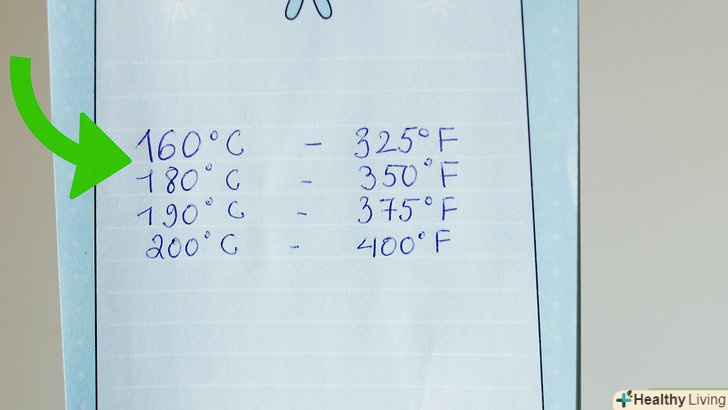 160°C - 325°F
180°C - 350°F
190°C - 375°F
200°C - 400°F
Healthy Living